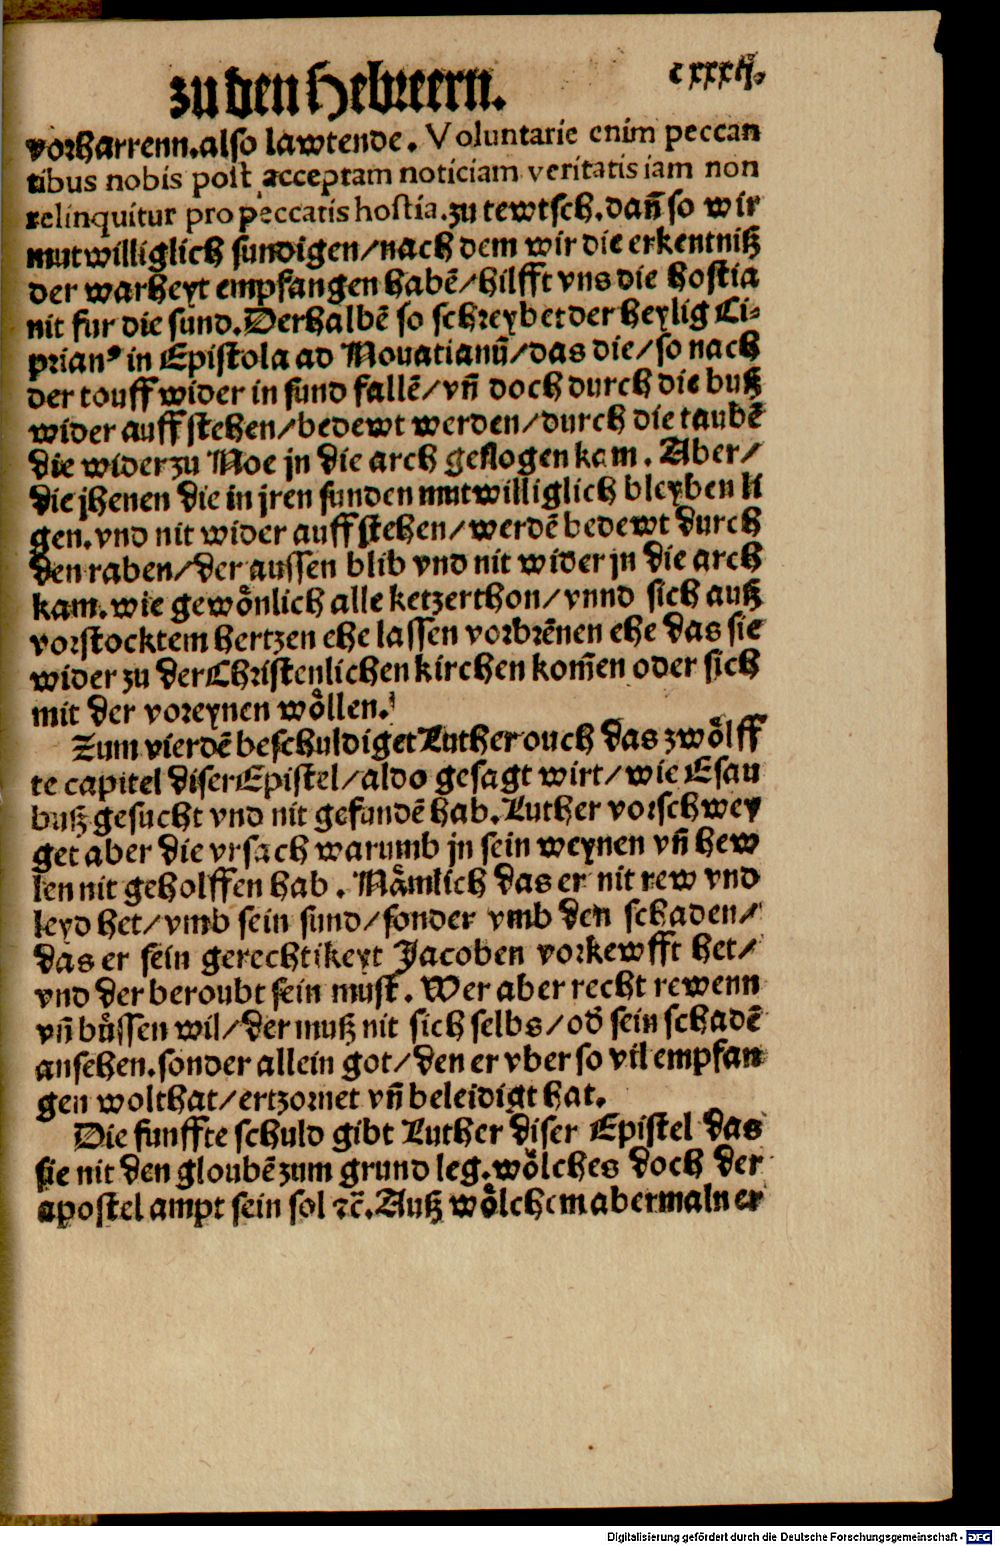 zu den Hebreern.
cxxxij.
vorharrenn.also lawtende. Voluntarie enim peccan
tibus nobis post acceptam noticiam veritatis iam non
relinquitur pro peccatis hostia.zu tewtsch.dañ so wir
mutwilliglich sundigen/nach dem wir die erkentniß
der warheyt empfangen habē/hilfft vns die hostia
nit fur die sund.Derhalbē so schreybet der heylig Ci-
prianꝰ in Epistola ad Nouatianū/das die/so nach
der touff wider in sund fallē/vñ doch durch die buß
wider auff stehen/bedewt werden/durch die taubē
die wider zu Noe jn die arch geflogen kam. Aber/
die jhenen die in jren sunden mutwilliglich bleyben li
gen.vnd nit wider auff stehen/werdē bedewt durch
den raben/der aussen blib vnd nit wider jn die arch
kam.wie gewönlich alle ketzer thon/vnnd sich auß
vorstocktem hertzen ehe lassen vorbrēnen ehe das sie
wider zu der Christenlichen kirchen kom̄en oder sich
mit der voreynen wöllen.
Zum vierdē beschuldiget Luther ouch das zwölff
te capitel diser Epistel/aldo gesagt wirt/wie Esau
buß gesucht vnd nit gefundē hab.Luther vorschwey
get aber die vrsach warumb jn sein weynen vñ hew
len nit geholffen hab. Nämlich das er nit rew vnd
leyd het/vmb sein sund/sonder vmb den schaden/
das er sein gerechtikeyt Jacoben vorkewfft het/
vnd der beroubt sein must. Wer aber recht rewenn
vñ büssen wil/der muß nit sich selbs/od̄ sein schadē
ansehen.sonder allein got/den er vber so vil empfan
gen wolthat/ertzornet vñ beleidigt hat.
Die funffte schuld gibt Luther diser Epistel das
sie nit den gloubē zum grund leg.wölches doch der
apostel ampt sein sol ꝛc̄.Auß wölchem abermaln er
Digitalisierung gefördert durch die Deutsche Forschungsgemeinschaft - DFG